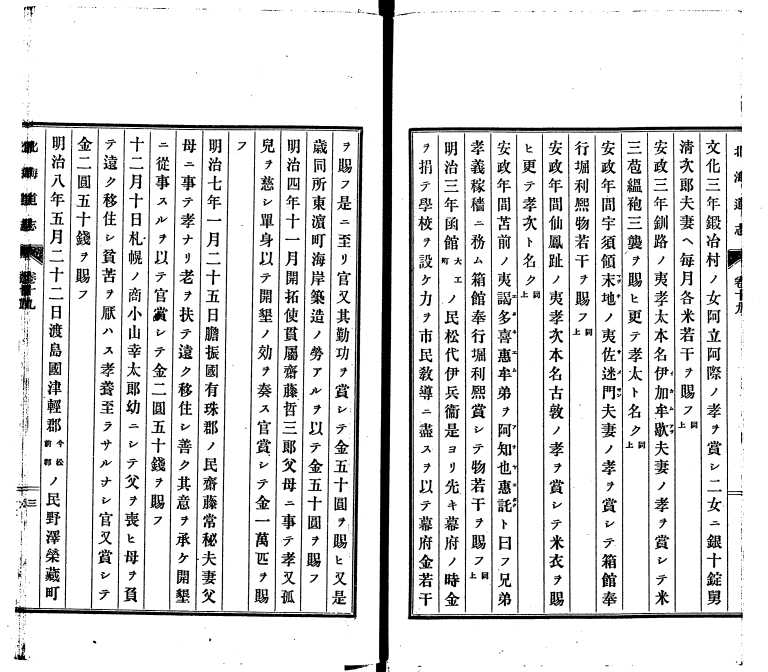 北海道志 卷十九
文化三年鍛冶村ノ女阿立阿際ノ孝ヲ賞シ二女ニ銀十錠舅
清次郎夫妻ヘ每月各米若干ヲ賜フ同上
安政三年釧路ノ夷孝太本名伊加牟歇夫妻ノ孝ヲ賞シテ米
三苞縕袍三襲ヲ賜ヒ更テ孝太ト名ク同上
安政年間宇須領末地ノ夷佐迷門夫妻ノ孝ヲ賞シテ箱館奉
行堀利熙物若干ヲ賜フ同上
安政年間仙鳳趾ノ夷孝次本名古敦ノ孝ヲ賞シテ米衣ヲ賜
ヒ更テ孝次ト名ク同上
安政年間苫前ノ夷謁多喜惠牟弟ヲ阿知也惠託ト曰フ兄弟
孝義稼穡ニ務ム箱館奉行堀利熙賞シテ物若干ヲ賜フ同上
明治三年函館大工町ノ民松代伊兵衞是ヨリ先キ幕府ノ時金
ヲ捐テ學校ヲ設ケ力ヲ市民敎導ニ盡スヲ以テ幕府金若干
ヲ賜フ是ニ至リ官又其勤功ヲ賞シテ金五十圓ヲ賜ヒ又是
歲同所東濵町海岸築造ノ勞アルヲ以テ金五十圓ヲ賜フ
明治四年十一月開拓使貫屬齋藤哲三郎父母ニ事テ孝又孤
兒ヲ慈シ單身以テ開墾ノ効ヲ奏ス官賞シテ金一萬匹ヲ賜
フ
明治七年一月二十五日膽振國有珠郡ノ民齋藤常秘夫妻父
母ニ事テ孝ナリ老ヲ扶テ遠ク移住シ善ク其意ヲ承ケ開墾
ニ從事スルヲ以テ官賞シテ金二圓五十錢ヲ賜フ
十二月十日札幌ノ商小山幸太郎幼ニシテ父ヲ喪ヒ母ヲ負
テ遠ク移住シ貧苦ヲ厭ハス孝養至ラサルナシ官又賞シテ
金二圓五十錢ヲ賜フ
明治八年五月二十二日渡島國津輕郡今松前郡ノ民野澤榮藏町
北海道志 卷十九 三